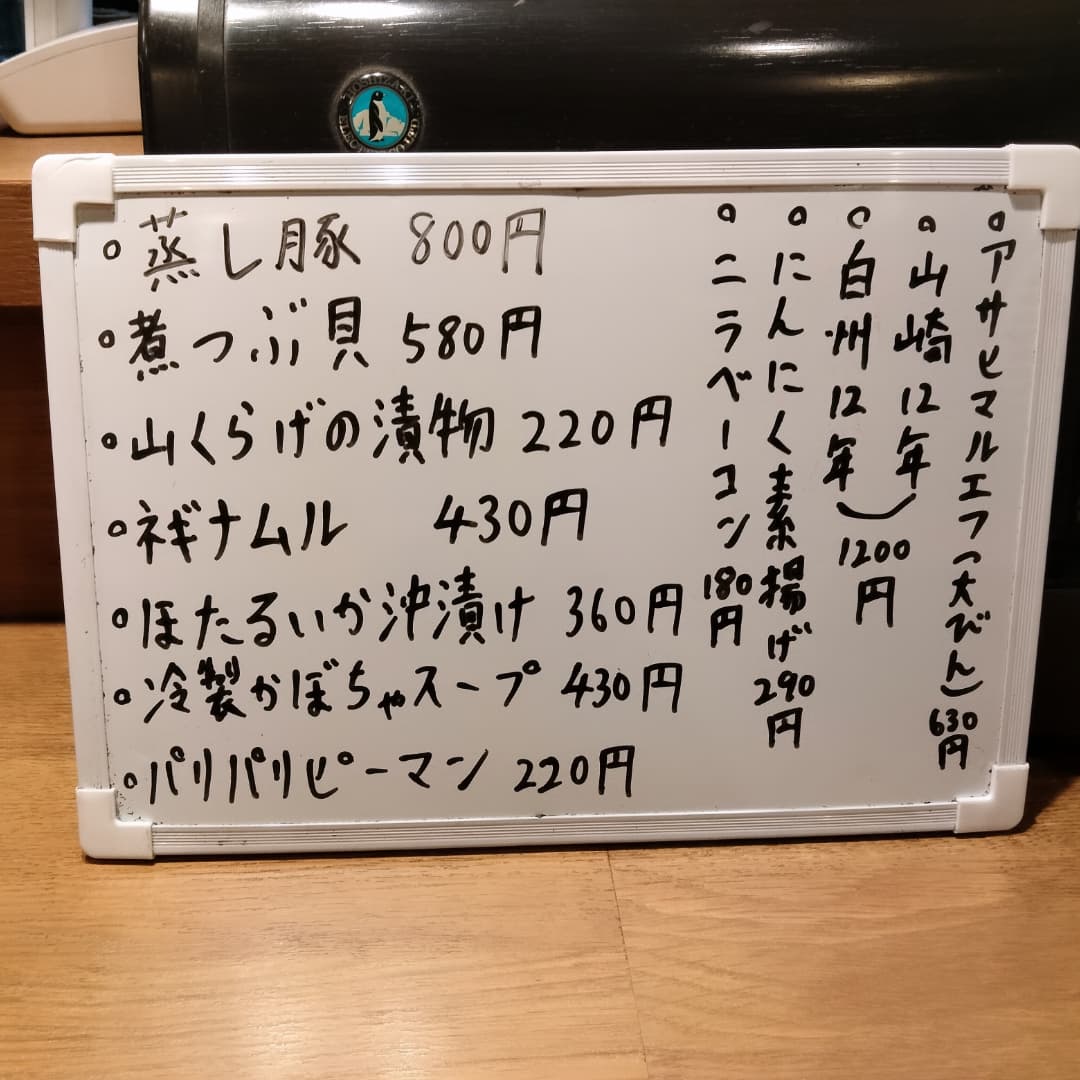 HOSHIZAKI
ELECTRIC CO.,LTD
。蒸し豚 800円
。煮つぶ貝 580円
。山くらげの漬物 220円
。ネギナムル 430円
。ほたるいか沖漬け 360円
。冷製かぼちゃスープ 430円
。パリパリピーマン 220円
。アサヒマルエフ(大びん) 630円
。山崎12年
。白州12年
1200円
。にんにく素揚げ 290円
。ニラベーコン 180円